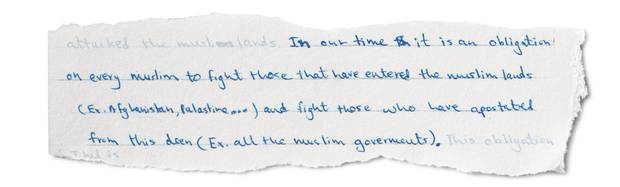 attacked the muslim lands. In our time it is an obligation
on every muslim to fight those that have entered the muslim lands
(Ex. Afghanistan, Palastine...) and fight those who have apostated
from this deen (Ex. all the muslim goverments). This obligation
This is